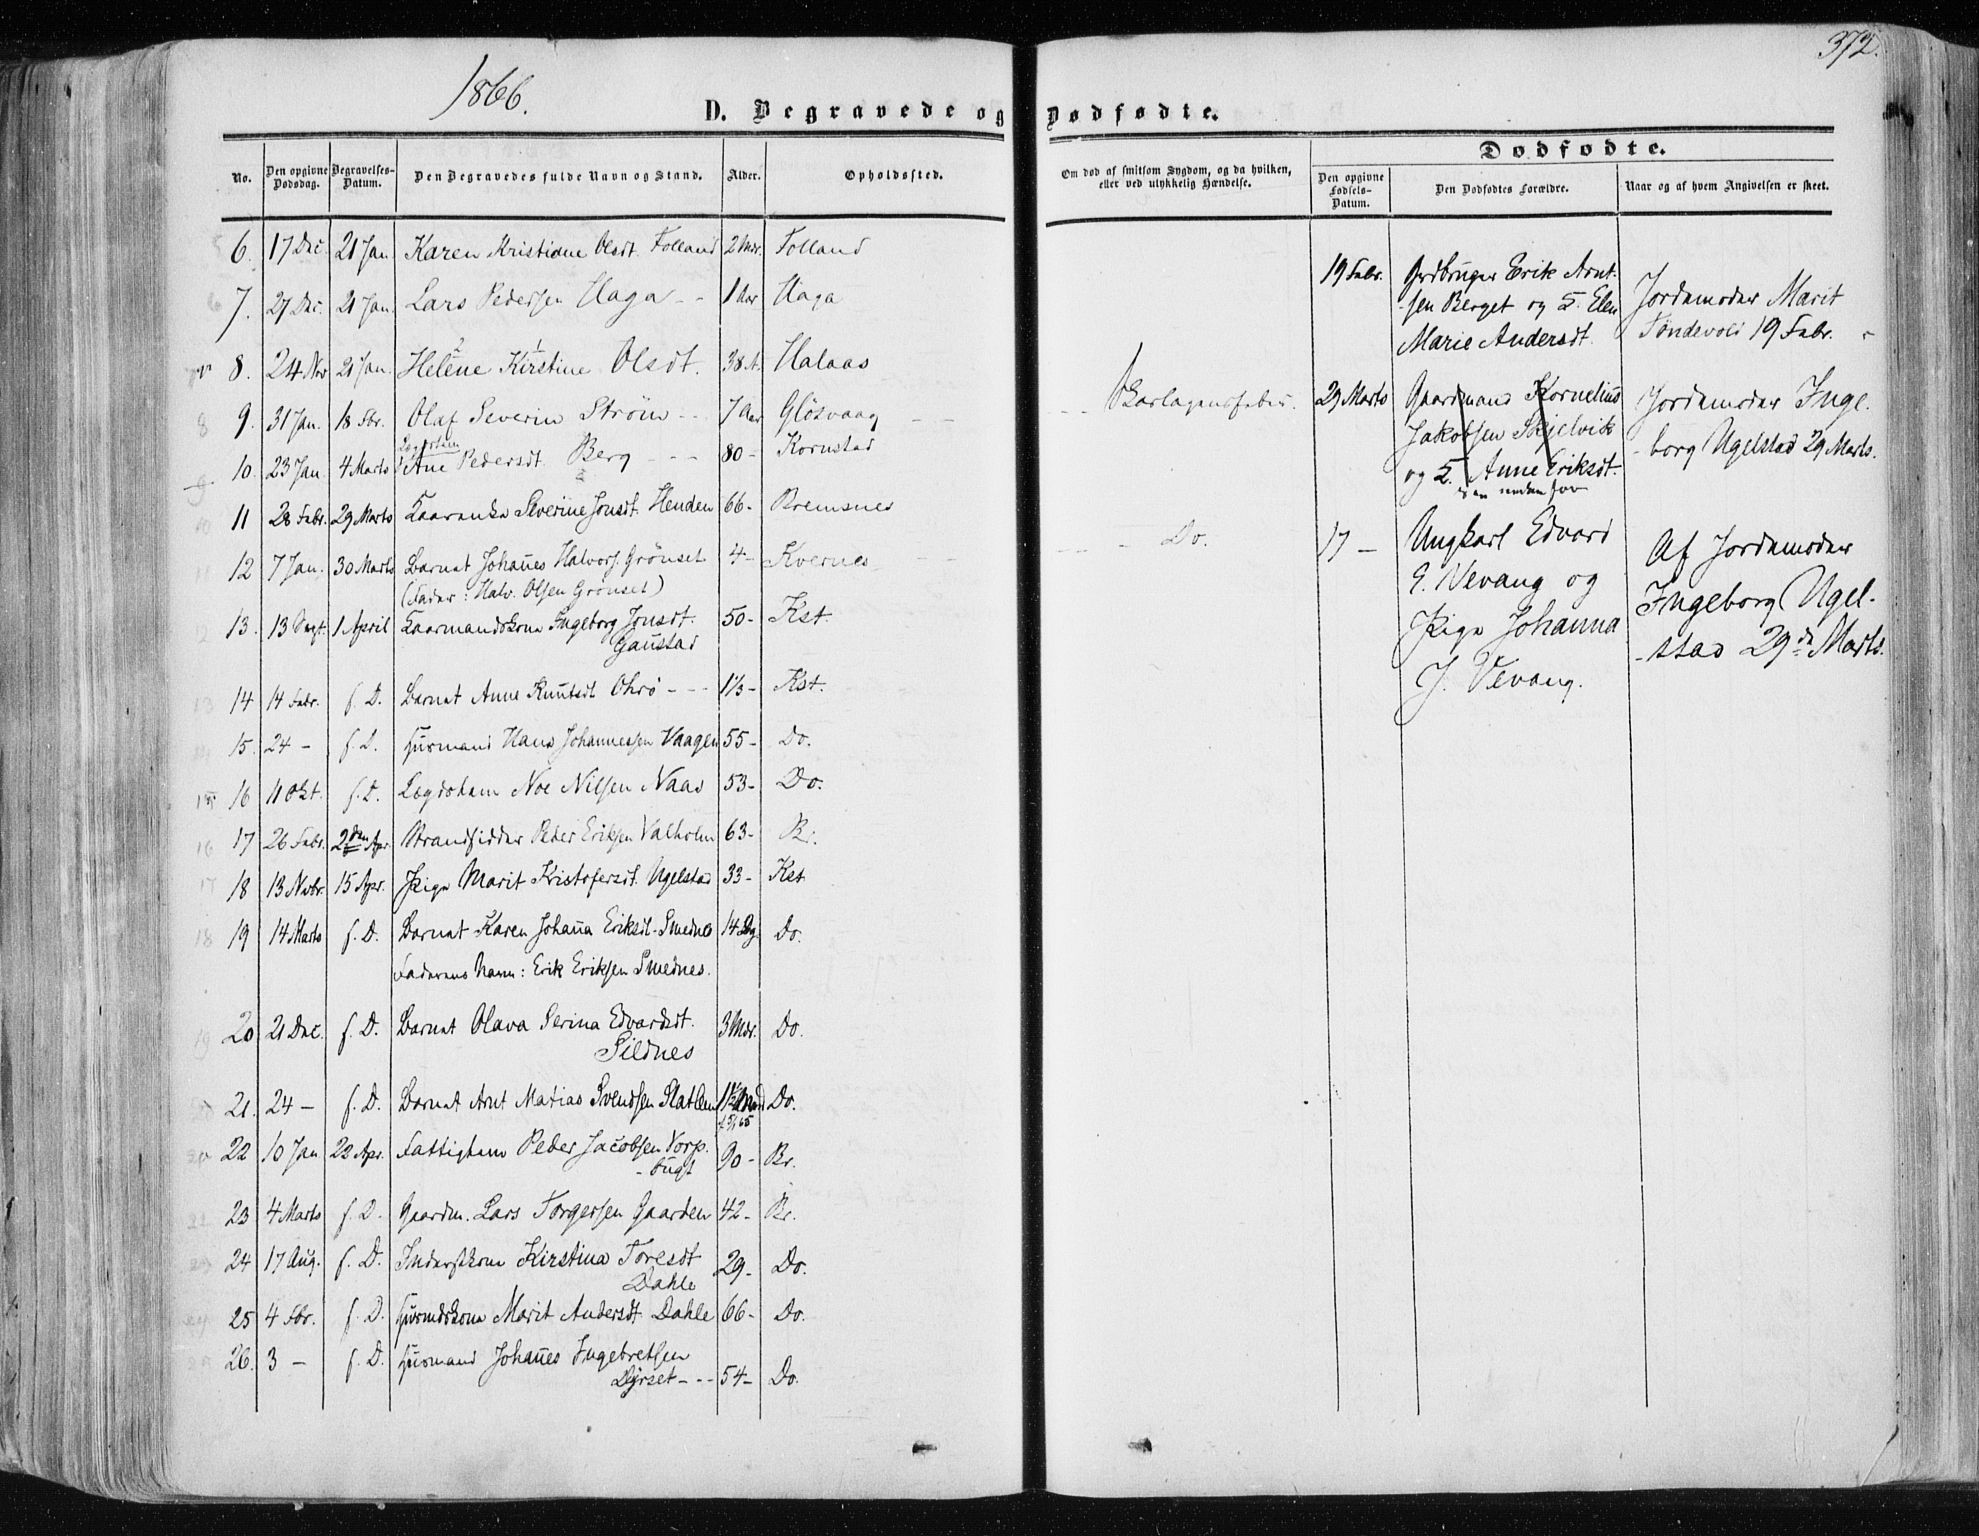 1866.
372.
D. Begravede og Dødfødte.
No.
Den opgivne Dødsdag.
Begravelses-Datum.
Den Begravedes fulde Navn og Stand.
Alder.
Opholdssted.
Om død af smitsom Sygdom, og da hvilken,
eller ved ulykkelig Hændelse.
Dødfødte.
Den opgivne Fødsels-Datum.
Den Dødfødtes Forældre.
Naar og af hvem Angivelsen er skeet.
6. 17 Dec. 21 Jan. Karen Kristiane Olsdt. Folland 2 Mdr. Folland
7. 27 Dec. 21 Jan. Lars Pedersen Haga - - 1 Aar Haga
8. 24 Nov 21 Jan. Helene Kirstine Olsdt. 38 A. Halaas
9. 31 Jan. 18 Fbr. Olaf Severin Strøm - - 7 Aar Glösvaag
10. 23 Jan. 4 Marts Ane Pedersdt. Berg - - - 80 - Kornstad
11 28 Febr. 29 Marts Severine Jonsdt. Henden 66 - Bremsnes
12 7 Jan. 30 Marts Barnet Johañes Halvors. Grönset 4 - Kvernes
(Fader: Halv. Olsen Grönset)
13. 13 1 April Gaarmandskone Ingeborg Jonsdt. 50 - Kst.
Gaustad
14 14 Febr. f. D. Barnet Anne Knutsdt. Ohrö - - - 1⅓ - Kst.
15. 24 - f. D. Husmand Hans Johannessen Vaagen 55 - Do.
16 11 Okt. f. D. Lægdslem Noe Nilsen Naas 53 - Do.
17 26 Febr. 2den Apr. Strandsidder Peder Eriksen Valholm 63 - Br.
18 13 Novbr. 15 Apr. Pige Marit Kristofersdt. Ugelstad 33 - Kst
19 14 Marts f. D. Barnet Karen Johaña Eriksdt. Smednes 14 Dg. Do.
Faderens Navn: Erik Eriksen Smednes.
20 21 Dec. f. D. Barnet Olava Serina Edvardsdt. 3 Mdr. Do.
Sildnes
21. 24 - f. D. Barnet Arnt Matias Svendsen Do.
22 10 Jan 22 Apr. Fattiglem Peder Jacobsen Vorp. 90 - Br.
-bugt
23 4 Marts f. D. Gaardm. Lars Torgersen Gaarden 42 - Br.
24 17 Aug. f. D. Inderstkone Kirstina Toresdt 29 - Do.
Dahle
25 4 Fbr. f. D. Husmdskone Marit Andersdt. Dahle 66 - Do.
26. 3 - f. D. Husmand Johañes Ingebretsen
Dyrset - - - 54 - Do.
- - Skarlagensfeber.
- - - Do.
19 Febr. Jordbruger Erik Arnt-
sen Berget og H. Elen
Marie Andersdt.
Jordemoder Marit
Töndevold 19 Febr.
29 Marts Gaardmand Kornelius
Jakobsen Skjelvik
og H. Anne Eriksdt.
nedenfor
Jordemoder Inge-
borg Ugelstad 29 Marts.
17 - Ungkarl Edvard
E. Vevang og
Pige Johanna
J. Vevang.
Af Jordemoder
Ingeborg Ugel-
stad 29de Marts.